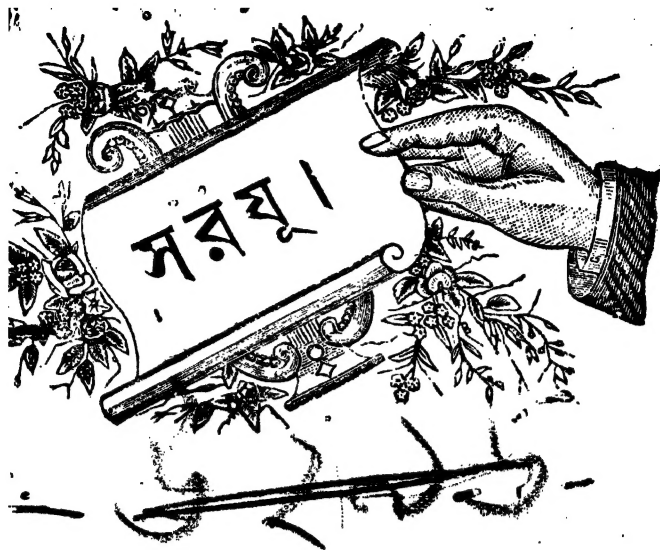 সরযু।